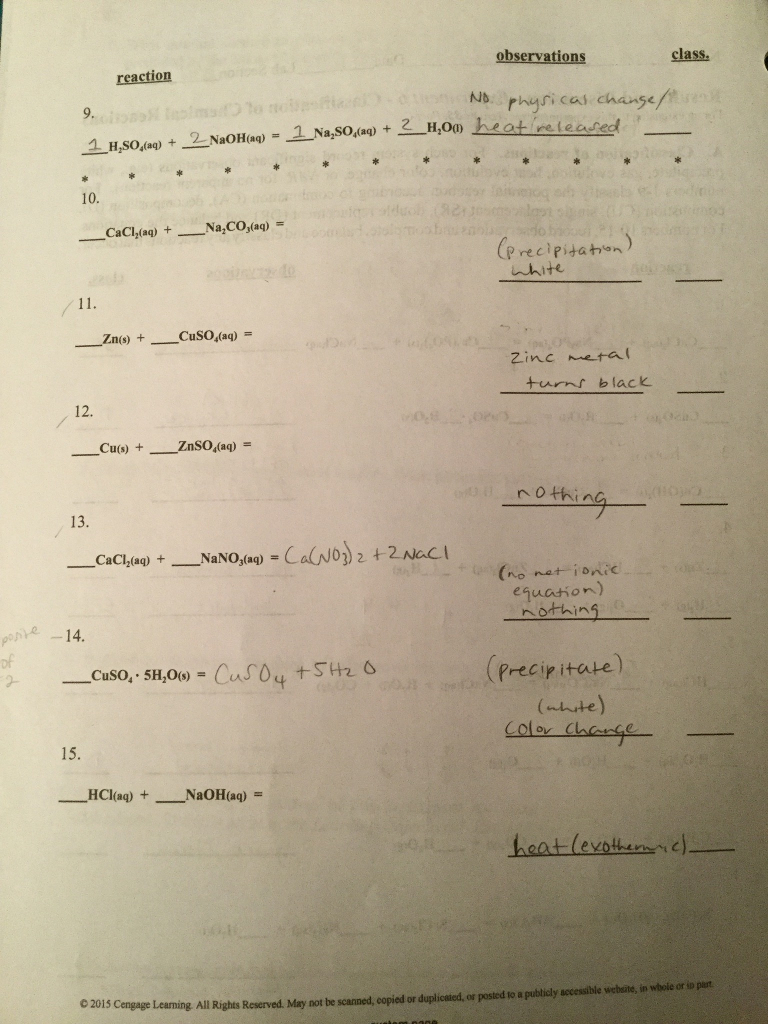 observations class.
reaction
9.
No physical change/
1 H₂SO₄(aq) + 2 NaOH(aq) = 1 Na₂SO₄(aq) + 2 H₂O(l) heat released ____
* * * * * * * * * * * * *
10.
___CaCl₂(aq) + ___Na₂CO₃(aq) =
(precipitation)
white
11.
___Zn(s) + ___CuSO₄(aq) =
zinc metal
turns black
12.
___Cu(s) + ___ZnSO₄(aq) =
nothing
13.
___CaCl₂(aq) + ___NaNO₃(aq) = Ca(NO3)2 + 2NaCl
(no net ionic
equation)
nothing
14.
___CuSO₄ · 5H₂O(s) = CuSO4 + 5H2O
(precipitate)
(white)
color change
of
2
15.
___HCl(aq) + ___NaOH(aq) =
heat (exothermic)
© 2015 Cengage Learning. All Rights Reserved. May not be scanned, copied or duplicated, or posted to a publicly accessible website, in whole or in part.